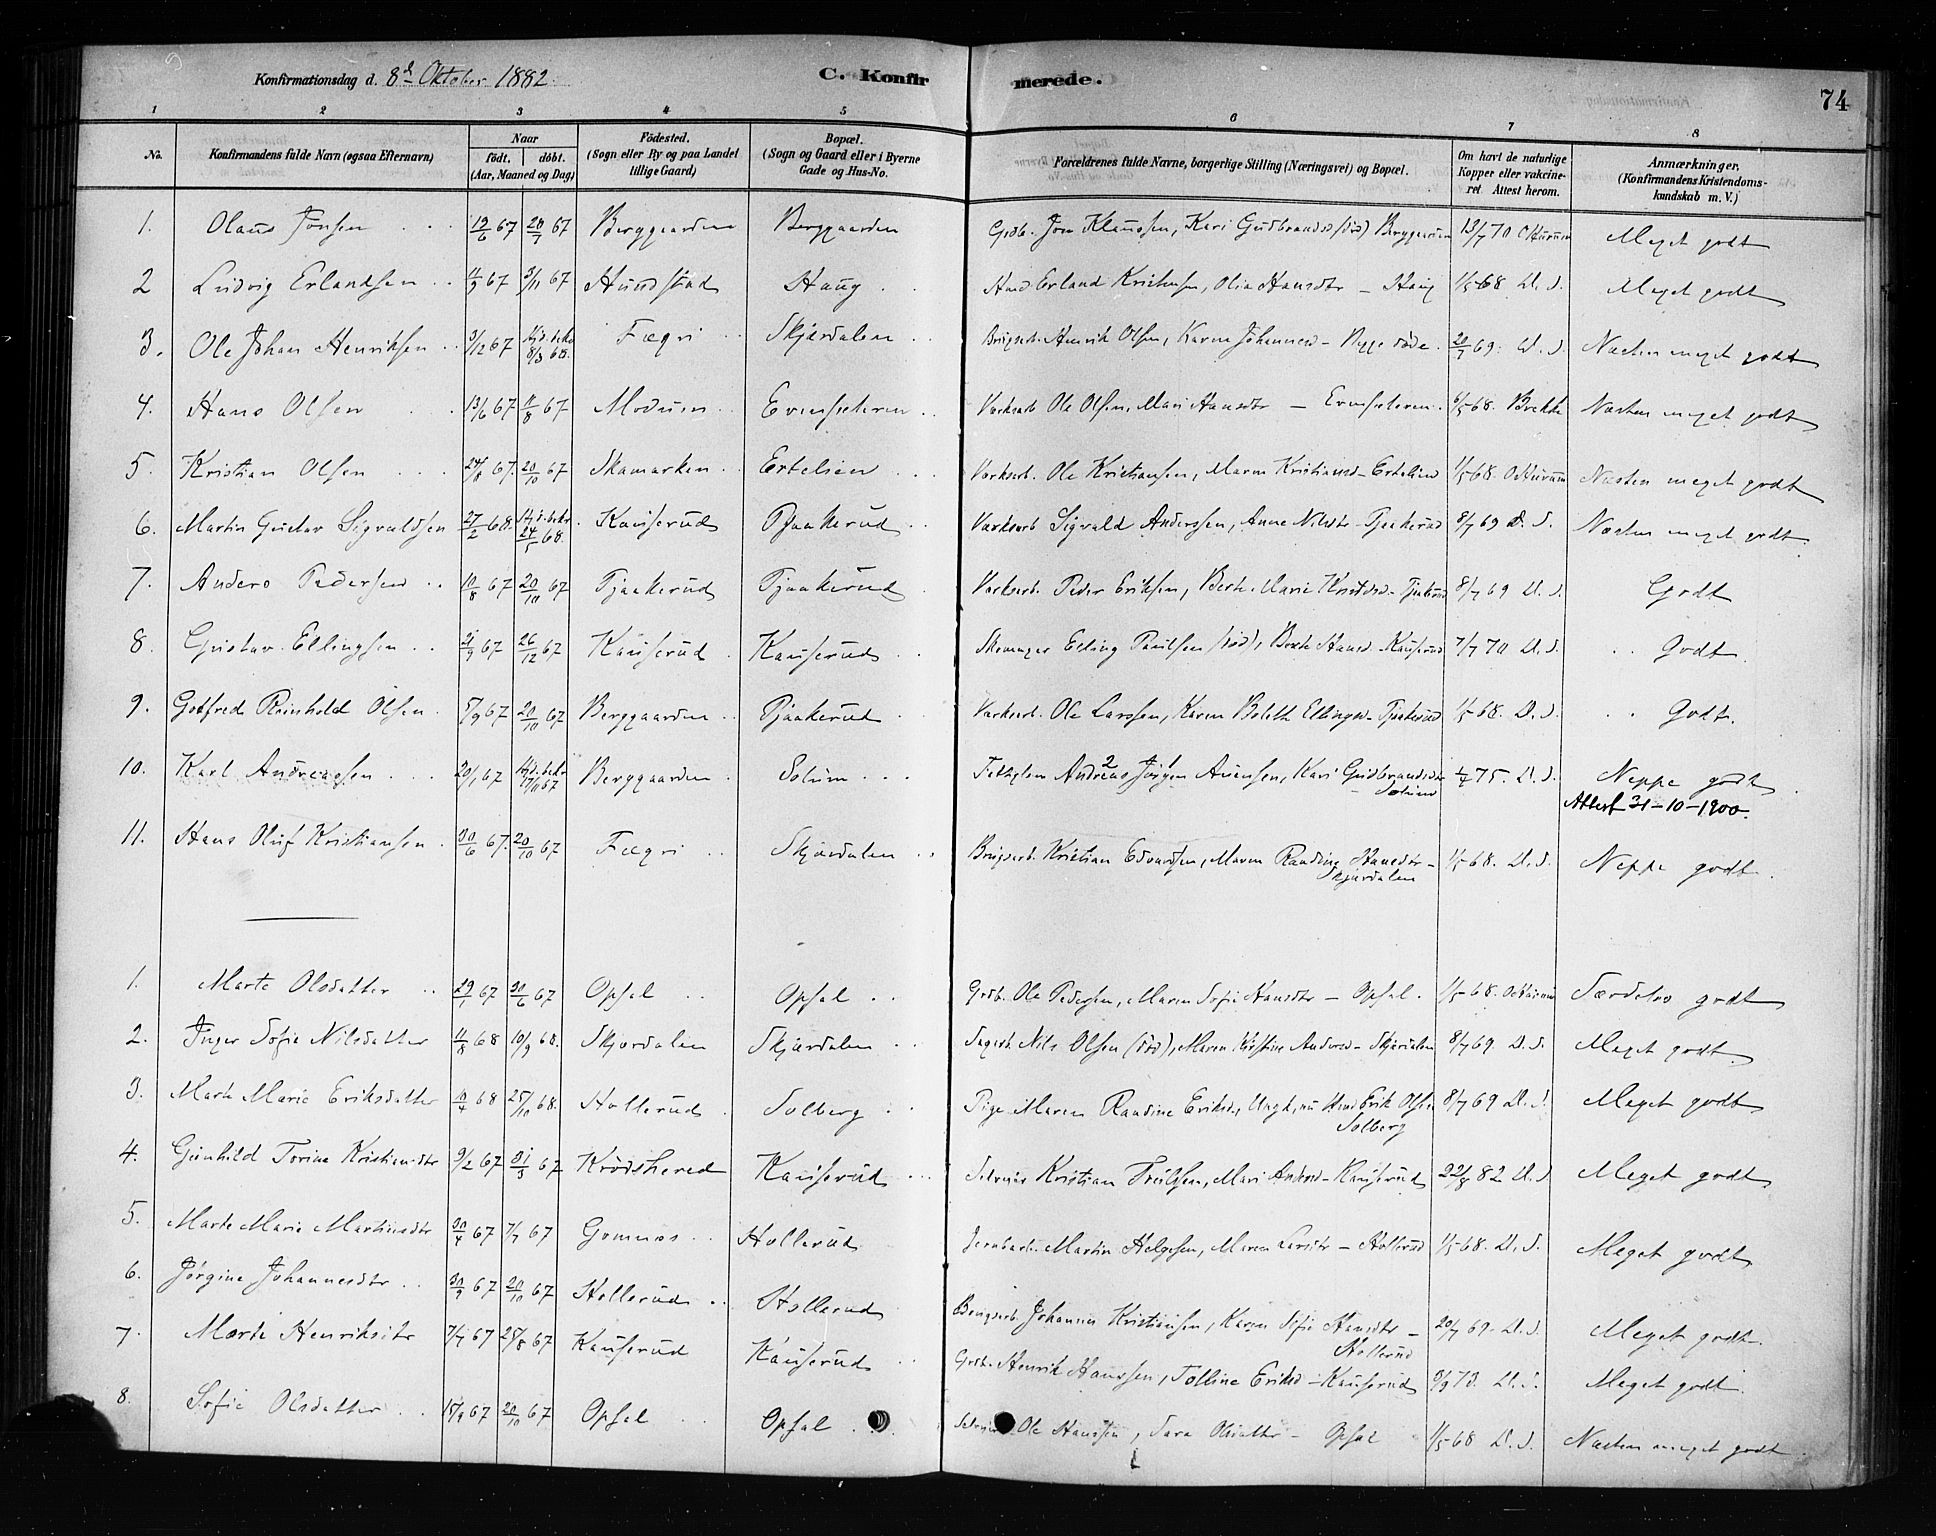 Konfirmationsdag d. 8d Oktober 1882. C. Konfirmerede. 74
1 2 3 4 5 6 7 8
No. Konfirmandens fulde Navn (ogsaa Efternavn) Naar født. døbt. (Aar, Maaned og Dag) Fødested. (Sogn eller By og paa Landet tillige Gaard) Bopæl. (Sogn og Gaard eller i Byerne Gade og Hus-No. Forældrenes fulde Navne, borgerlige Stilling (Næringsvei) og Bopæl. Om havt de naturlige Kopper eller vakcineret. Attest herom. Anmærkninger, (Konfirmandens Kristendomskundskab m. V.)
1. Olaus Jonsen 12/6 67 20/7 67 Berggaarden Berggaarden Grdb. Jon Klaussen, Kari Gudbrandsd (død) Berggaarden 13/7 70 Meget godt
2 Ludvig Erlandsen 11/9 67 3/11 67 Hundstad Haug Hmd Erland Kristensen, Olia Hansdtr - Haug 1/5 68 D. S. Meget godt
3. Ole Johan Henriksen 3/12 67 Hjd. bekr 8/3 68. Fægri Skjærdalen Brugsarb. Henrik Olsen, Karen Johannesd - 20/7 69. D. S. Næsten meget godt
4. Hans Olsen 13/6 67. 11/8 67 Modum Evensæteren Værksarb Ole Olsen, Mari Hansdtr - Evensæteren. 6/5 68. Næsten meget godt
5. Kristian Olsen 24/8 67. 20/10 67 Skamarken Ertelien Værksarb. Ole Kristiansen, Maren Kristiansd - Ertelien 1/5 68. Næsten meget godt
6. Martin Gustav Sigvaldsen 27/2 68. Hjd. bekr. 24/5 68. Kauserud Tjaakerud Værksarb Sigvald Anderssen, Anne Nilsdtr - Tjaakerud 8/7 69 D. S. Næsten meget godt.
7. Anders Pedersen 10/8 67 20/10 67 Tjaakerud Tjaakerud Værksarb. Peder Eriksen, Berte Marie Knudsd - Tjaakerud 8/7 69 D. S. Godt
8. Gustav Ellingsen 21/9 67 26/12 67 Kauserud Kauserud Elling Paulsen (død), Berte Hansd - Kauserud 7/7 70 D. S. Godt
9. Gotfred Reinhold Olsen. 5/9 67 20/10 67 Berggaarden Tjaakerud Værksarb. Ole Larssen, Karen Bolette Ellingsd - Tjaakerud 1/5 68. D. S. Godt.
10. Karl Andreassen 20/1 67 Hjd. bekr 17/11 67 Berggaarden Solum Andreas 2 Jörgen Auensen, Kari Gudbrandsdtr
- Solum 1/4 75. D. S. Neppe godt
Attest 31-10-1900.
11. Hans Oluf Kristiansen 30/6 67. 20/10 67 Fægri Skjærdalen Brugsarb. Kristian Edvardsen, Maren Randine Hansdtr -
Skjærdalen 1/5 68. D. S. Neppe godt.
1. Marte Olsdatter 29/1 67 30/6 67 Opsal Opsal Grdb. Ole Pedersen, Maren Sofie Hansdtr - Opsal. 1/5 68. Særdeles godt
2. Inger Sofie Nilsdatter 11/8 68 10/9 68. Skjærdalen Skjærdalen Sagarb. Nils Olsen (død), Maren Kristine Andersd - Skjærdalen 8/7 69. D. S. Meget godt
3. Marte Marie Eriksdatter 10/4 68 25/10 68. Hollerud Solberg Pige Maren Randine Eriksd, Ungk, nu Hmd Erik Olsen
Solberg 8/7 69 D. S. Meget godt
4. Gunhild Torine Kristiansdtr 9/2 67 31/3 67 Krödsherred Kauserud Kristian Truulsen, Mari Andersd - Kauserud 22/8 82 D. S Meget godt
5. Marte Marie Martinsdtr 30/4 67 7/7 67 Gomnes Hollerud Jernbarb. Martin Helgesen, Maren Larsdtr - Hollerud 1/5 68. D. S. Meget godt
6. Jørgine Johannesdtr 30/9 67 20/10 67 Hollerud Hollerud Brugsarb. Johannes Kristiansen, Karen Sofie Hansdtr -
Hollerud 20/7 69. D. S. Meget godt
7. Marte Henriksdtr 7/7 67 25/8 67 Kauserud Kauserud Grdb. Henrik Hanssen, Tolline Eriksd - Kauserud 9/9 73. D. S. Meget godt.
8. Sofie Olsdatter 15/9 67 20/10 67 Opsal Opsal Ole Hanssen, Sara Olsdatter - Opsal 1/5 68 D. S. Næsten meget godt